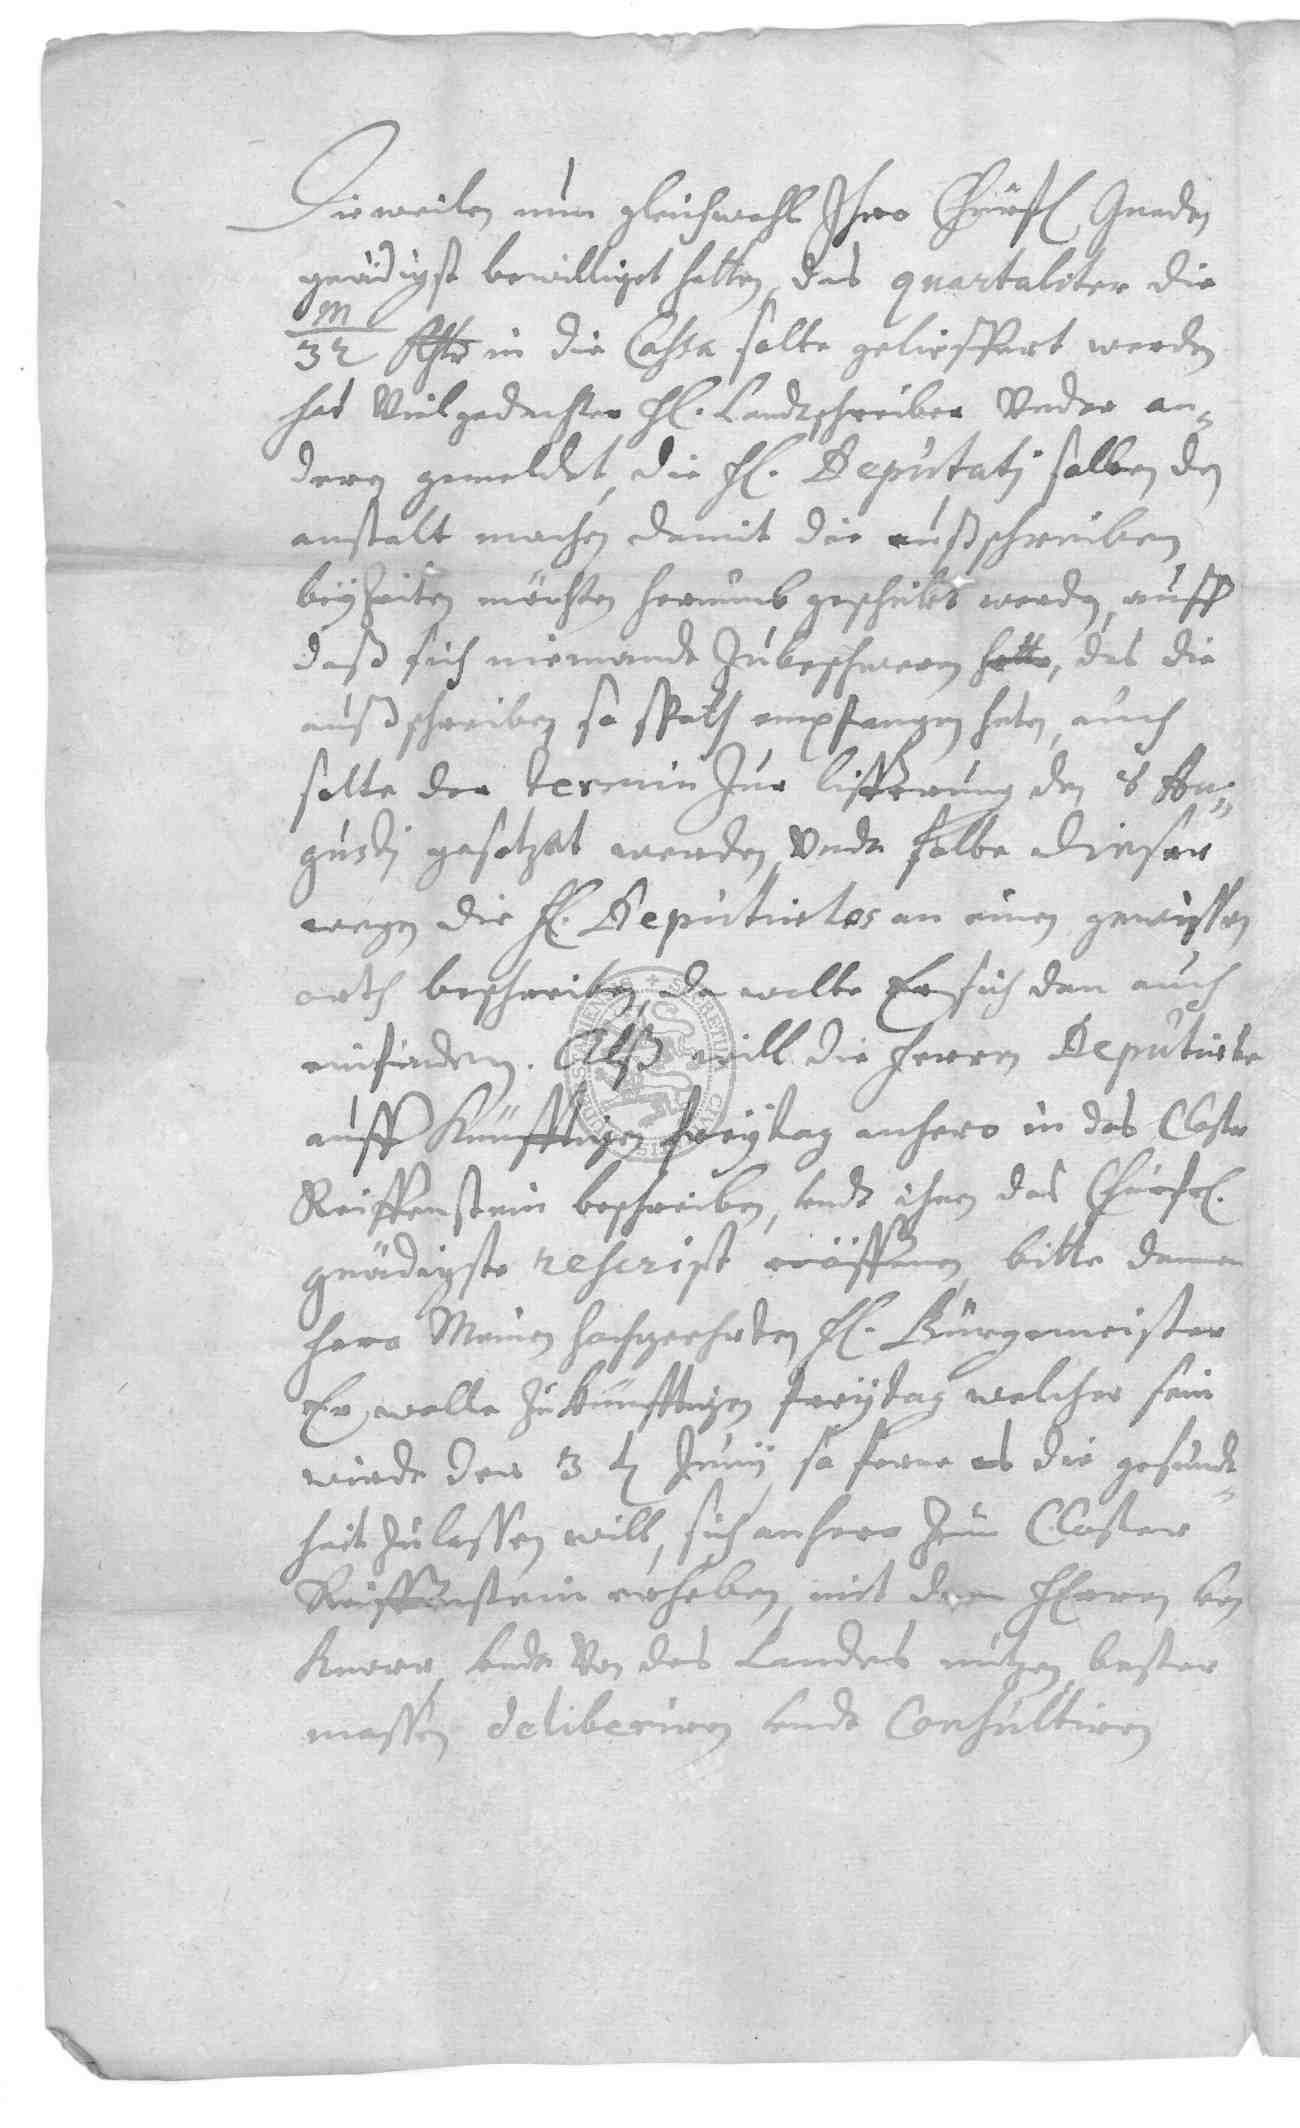 Dieweilen nun gleichwohl Ihro Churfl Gnaden
gnädigst bewilliget hetten, das quartaliter die
m
32 Rthr in die Cassa solte gelieffert werden
hat Vielgedachter Hl. Landtschreiber Vnder an-
dern gemeldet, die Hl. Deputatj solten den
anstalt machen damit die außschreiben
beyzeiten möchten herumb geschickt werden, auff
daß sich niemandt Zubeschweren hette, das die
außschreiben so spath empfangen heten, auch
solte der termin Zur lifferung den 8 Au-
gustj gesetzet werden, Vndt solte dieser
wegen die Hl. Deputirtes an einen gewissen
orth beschreiben, da wolte Er sich dan auch
einfinden. Alß will die Herren Deputirte
auff Künfftigen freytag anhero in das Closter
Reiffenstein beschreiben, Vndt ihnen das Churfl.
gnädigste rescript eröffenen, bitte dannen
hero Meinen hochgeehrten Hl. Bürgemeister
Er wolle Zukünfftigen freytag welcher sein
wirdt der 3 t Junij, so ferne es die gesundt-
heit Zulassen will, sich anhero Zum Closter
Reiffenstein erheben, mit den Herren von
Knorr, Vndt Von des Landes nutzen bester
massen deliberiren Vndt Consultiren